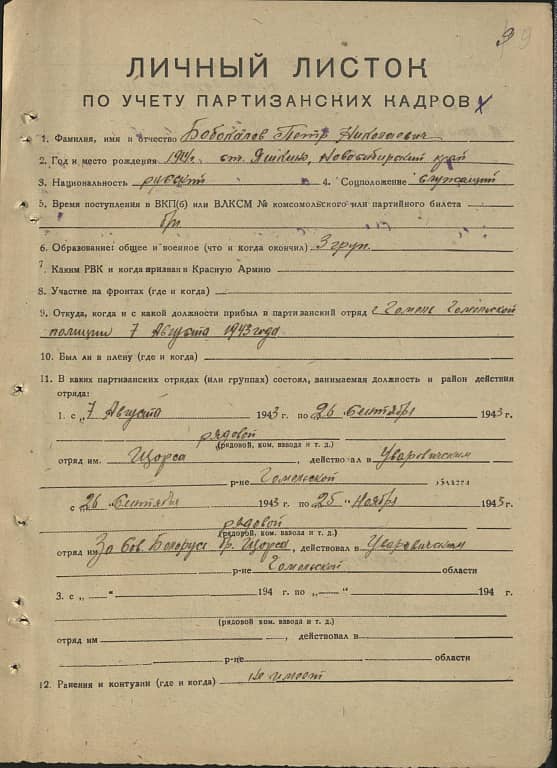 9
ЛИЧНЫЙ ЛИСТОК
ПО УЧЕТУ ПАРТИЗАНСКИХ КАДРОВ
1. Фамилия, имя и отчество Бобокалов Петр Николаевич
2. Год и место рождения 1914г. ст. Яшкино, Новосибирский край
3. Национальность русский 4. Соцположение служащий
5. Время поступления в ВКП(б) или ВЛКСМ № комсомольского или партийного билета
б/п
6. Образование: общее и военное (что и когда окончил) 3 груп.
7. Каким РВК и когда призван в Красную Армию
8. Участие на фронтах (где и когда)
9. Откуда, когда и с какой должности прибыл в партизанский отряд с Гомеля Гомельской
полиции 7 Августа 1943 года
10. Был ли в плену (где и когда)
11. В каких партизанских отрядах (или группах) состоял, занимаемая должность и район действия
отряда:
1. с „7 Августа 1943 г. по 26 Сентября 1943 г.
рядовой
(рядовой, ком. взвода и т. д.)
отряд им. Щорса, действовал в Уваровичском
р-не Гомельской области
с 26 Сентября 1943 г. по 25 Ноября 1943 г.
рядовой
(рядовой, ком. взвода и т. д.)
отряд им За Сов. Белорусь бр. Щорса, действовал в Уваровичском
р-не Гомельской области
3. с „ — “ 194 г. по „ — “ 194 г.
(рядовой, ком. взвода и т. д.)
отряд им , действовал в
р-не области
12. Ранения и контузии (где и когда) не имеет